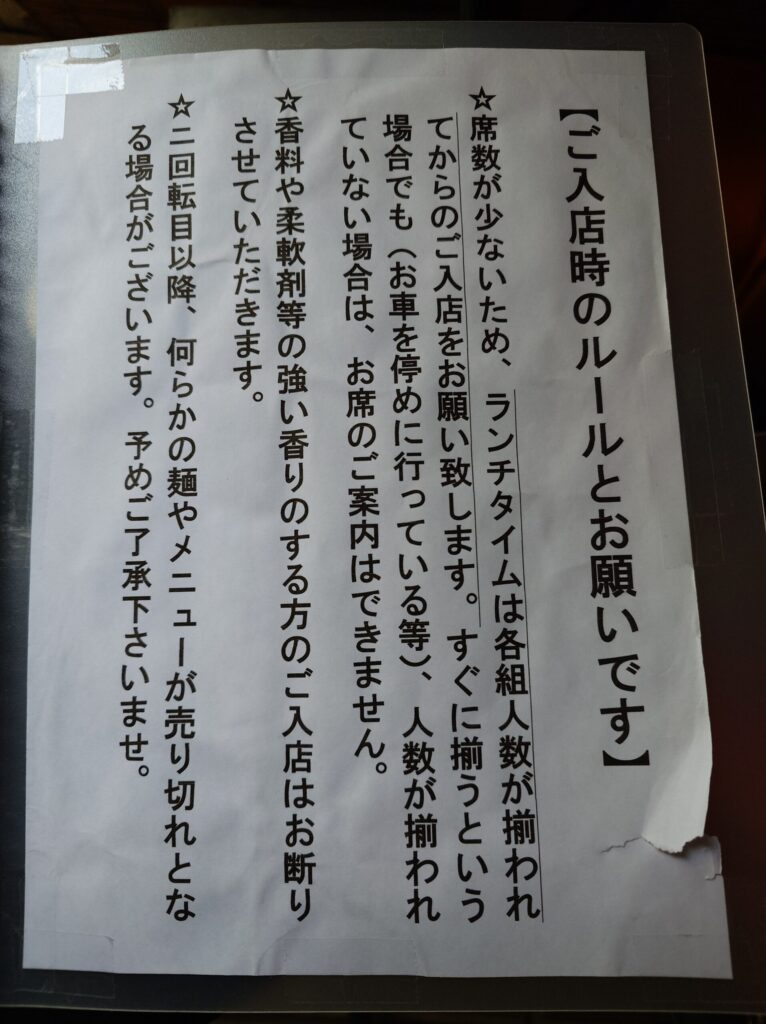 【ご入店時のルールとお願いです】
☆席数が少ないため、ランチタイムは各組人数が揃われ
てからのご入店をお願い致します。すぐに揃うという
場合でも（お車を停めに行っている等）、人数が揃われ
ていない場合は、お席のご案内はできません。
☆香料や柔軟剤等の強い香りのする方のご入店はお断り
させていただきます。
☆二回転目以降、何らかの麺やメニューが売り切れとな
る場合がございます。予めご了承下さいませ。